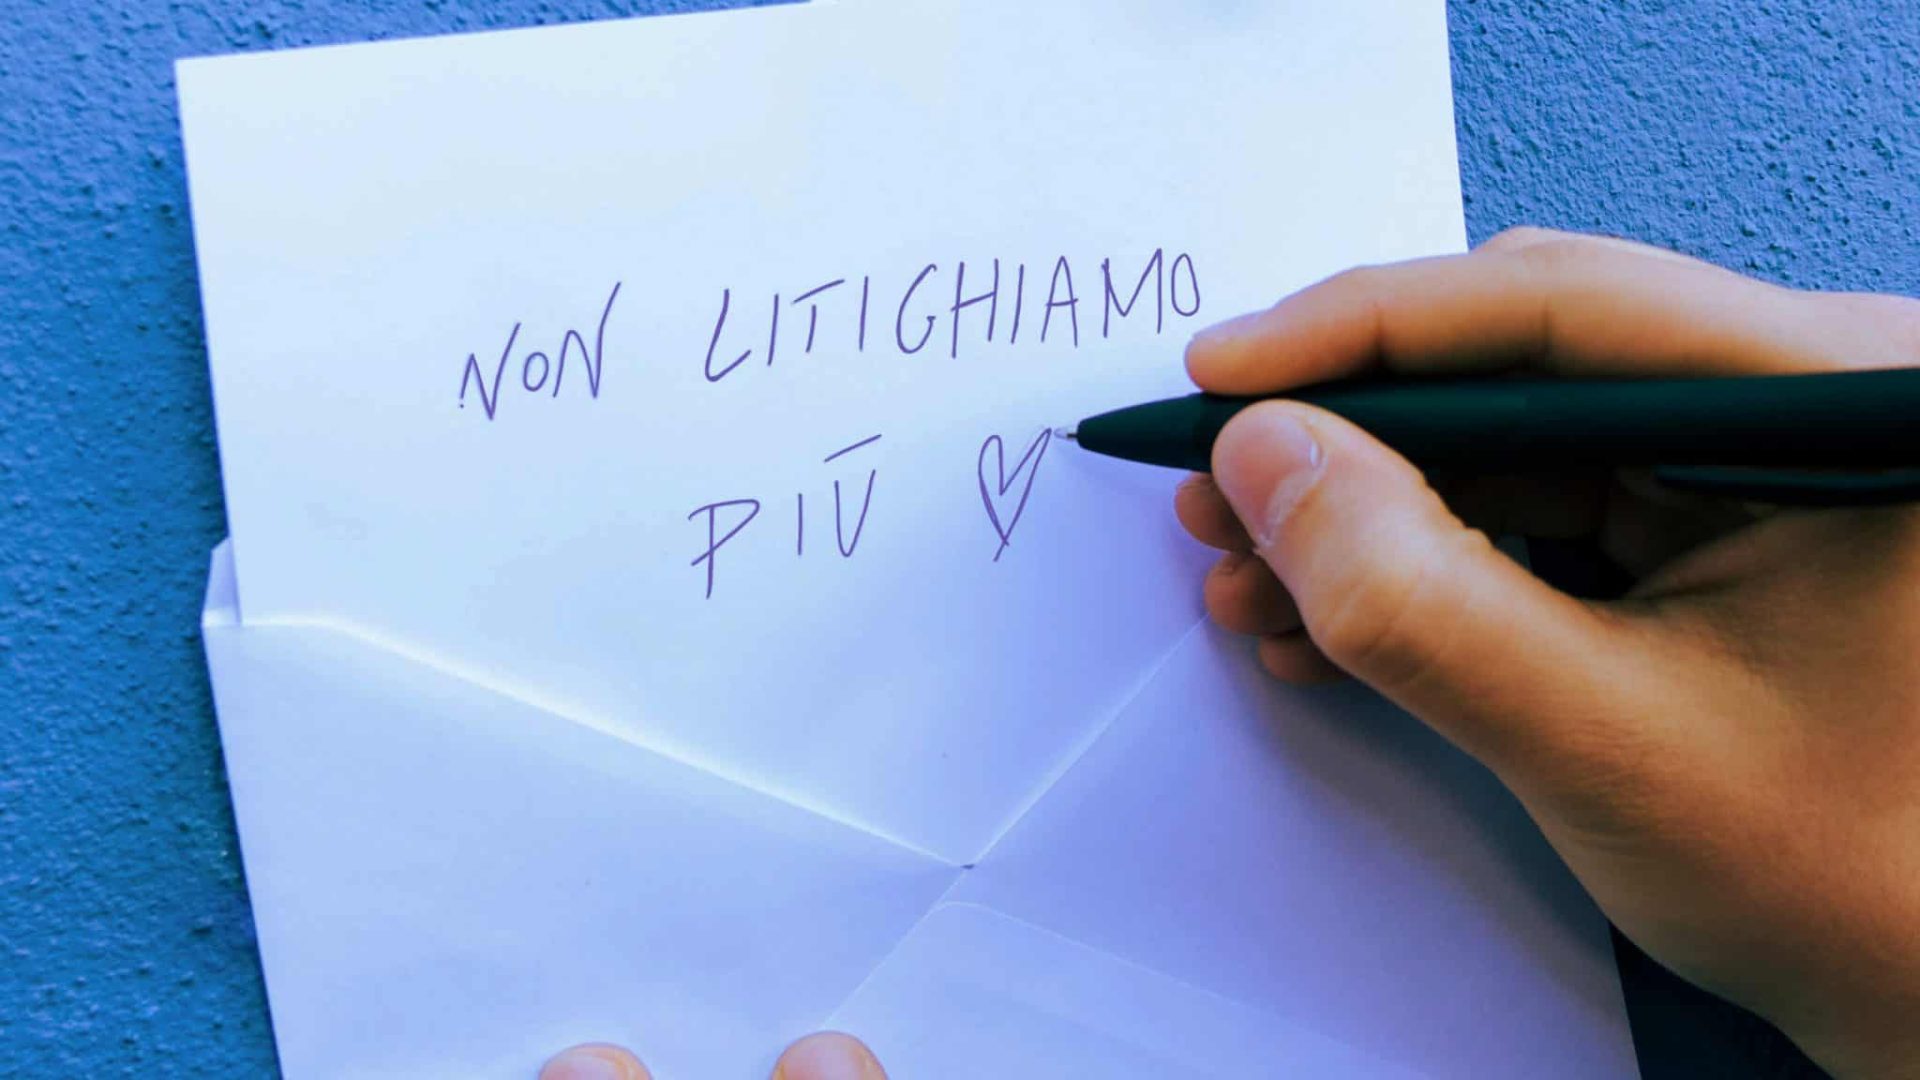 NON LITIGHIAMO
PIÙ ♡